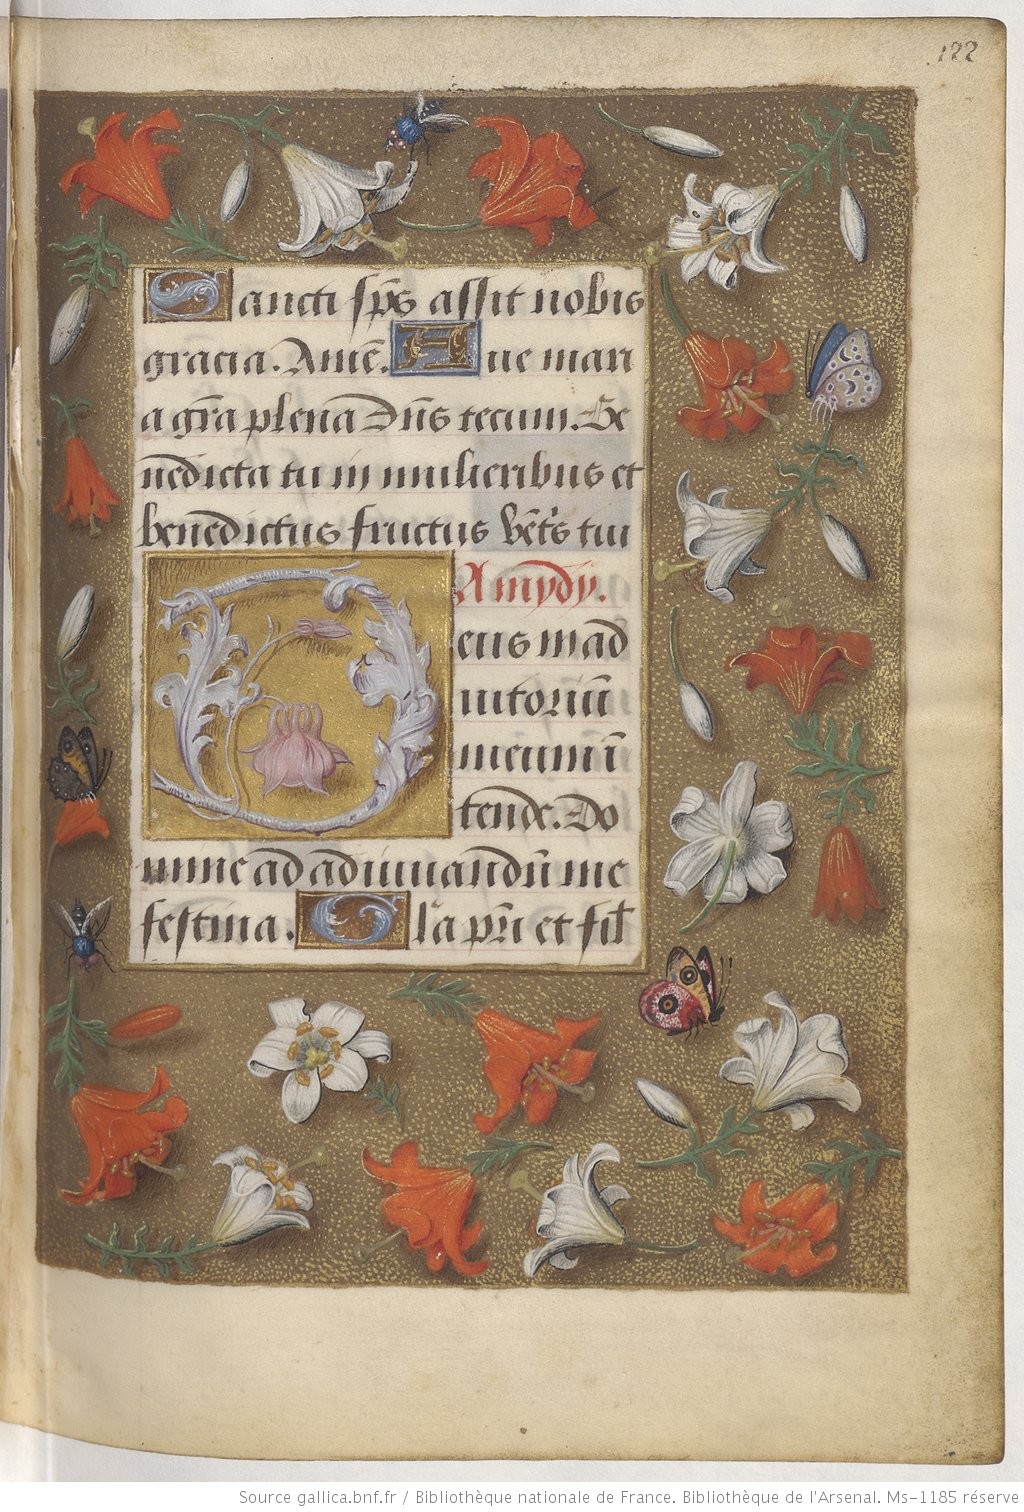 122
Sancti sp̄s assit nobis
gracia. Amē. Aue mari
a gr̄a plena Dn̄s tecum. Be
nedicta tu in mulieribus et
benedictus fructus vēt's tui
A mydy.
eus in ad
iutoriū
meum ī
tende. Do
mine ad adiuuandū me
festina. Gl'a pr̄i et fil'
Source gallica.bnf.fr / Bibliothèque nationale de France. Bibliothèque de l'Arsenal. Ms-1185 réserve